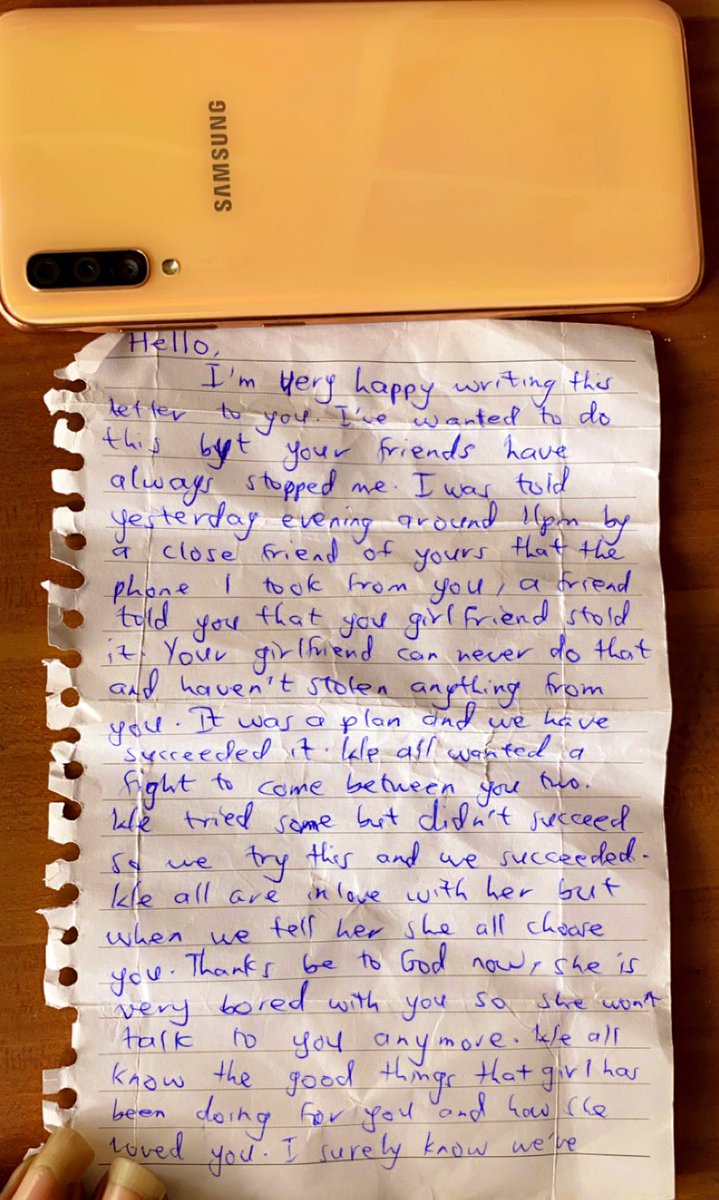 SAMSUNG
Hello,
I'm very happy writing this
letter to you. I've wanted to do
this byt your friends have
always stopped me. I was told
yesterday evening around 11pm by
a close friend of yours that the
phone I took from you, a friend
told you that you girlfriend stold
it. Your girlfriend can never do that
and haven't stolen anything from
you. It was a plan and we have
succeeded it. We all wanted a
fight to come between you two.
We tried some but didn't succeed
so we try this and we succeeded.
We all are inlove with her but
when we tell her she all choose
you. Thanks be to God now, she is
very bored with you so she won't
talk to you anymore. We all
know the good things that girl has
been doing for you and how she
loved you. I surely know we've